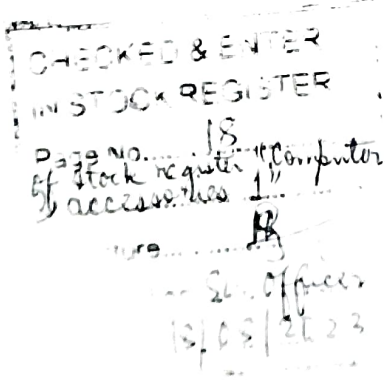 CHECKED & ENTER
IN STOCK REGISTER
Page No. ..... 18
of stock register "Computer
accessories 1"
Officer
18/08/2023